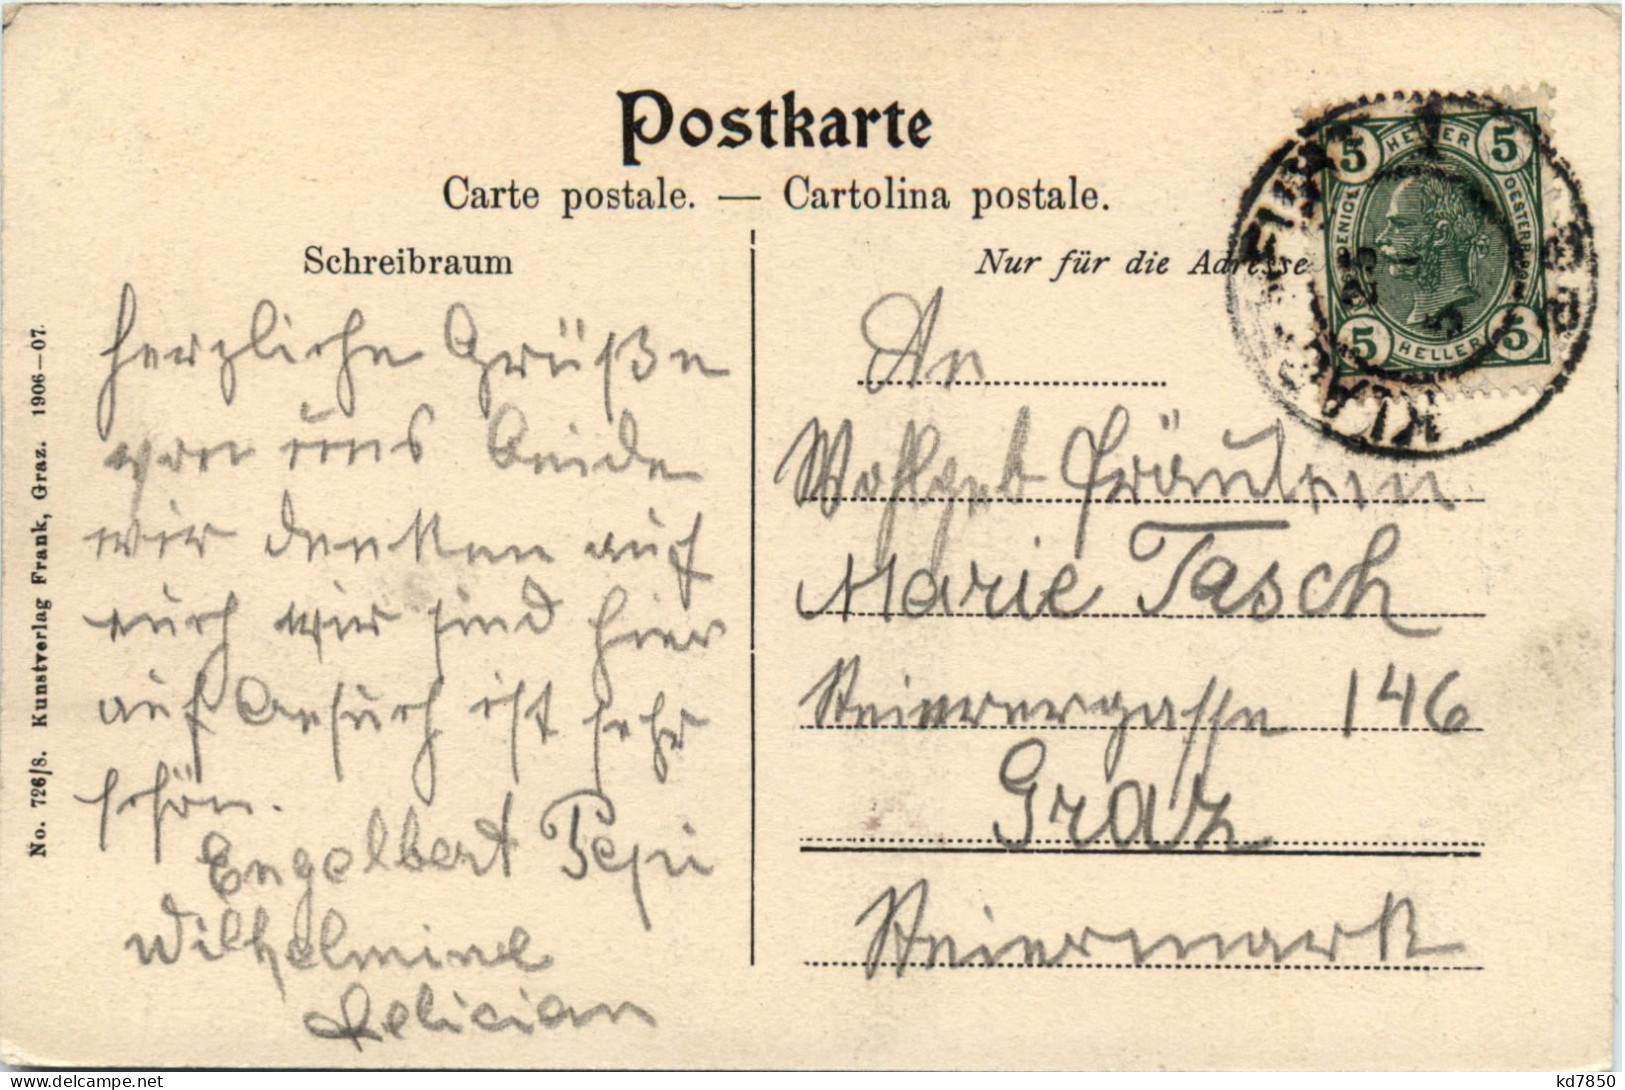 Postkarte
Carte postale. — Cartolina postale.
Schreibraum
Nur für die Adresse
herzliche Grüße
von uns beide
wir denken auf
euch wir sind hier
auf Besuch ist sehr
schön.
Engelbert Pepi
Wilhelmine
Felician
An
Wohlgeb Fräulein
Marie Tasch
Steierergasse 146
Graz
Steiermark
5 HELLER 5
5 HELLER 5
KLAGENFURT
No. 726/S. Kunstverlag Frank, Graz. 1906—07.
kd7850